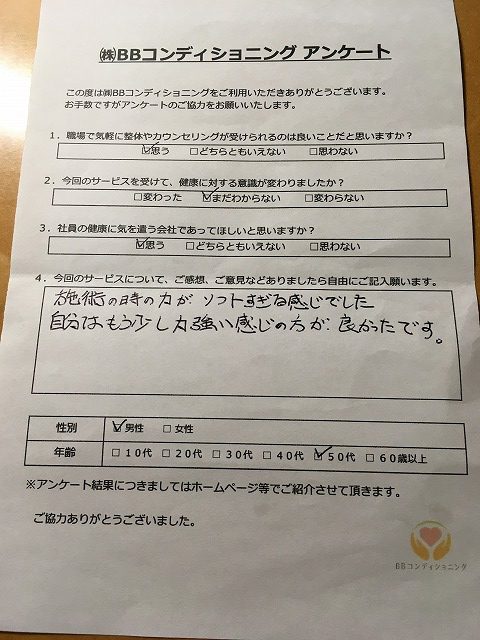 ㈱BBコンディショニング アンケート
この度は㈱BBコンディショニングをご利用いただきありがとうございます。
お手数ですがアンケートのご協力をお願いいたします。
1．職場で気軽に整体やカウンセリングが受けられるのは良いことだと思いますか？
☑思う □どちらともいえない □思わない
2．今回のサービスを受けて、健康に対する意識が変わりましたか？
□変わった ☑まだわからない □変わらない
3．社員の健康に気を遣う会社であってほしいと思いますか？
☑思う □どちらともいえない □思わない
4．今回のサービスについて、ご感想、ご意見などありましたら自由にご記入願います。
施術の時の力が ソフトすぎる感じでした
自分はもう少し力強い感じの方が 良かったです。
性別 ☑男性 □女性
年齢 □10代 □20代 □30代 □40代 ☑50代 □60歳以上
※アンケート結果につきましてはホームページ等でご紹介させて頂きます。
ご協力ありがとうございました。
BBコンディショニング